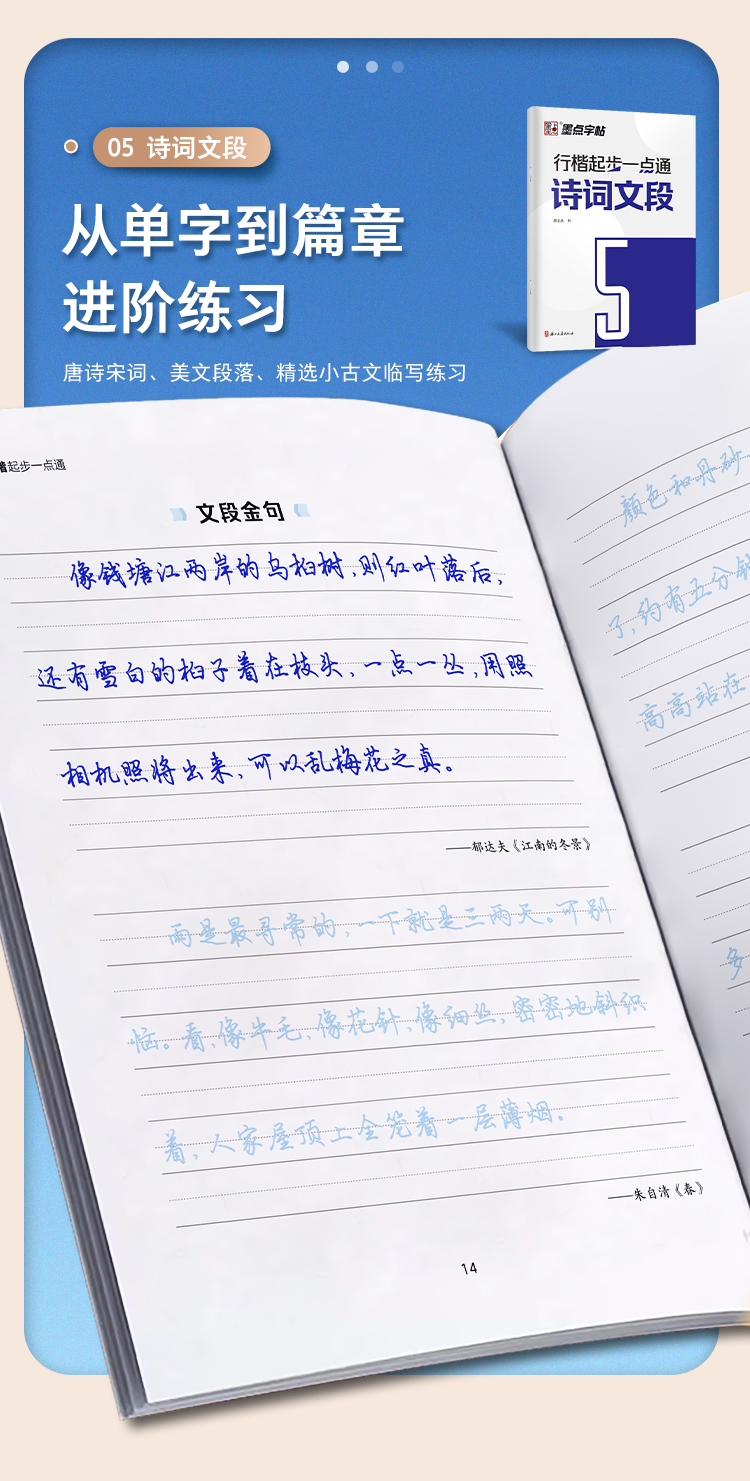 05 诗词文段
从单字到篇章
进阶练习
唐诗宋词、美文段落、精选小古文临写练习
墨点字帖
行楷起步一点通
诗词文段
5
楷起步一点通
文段金句
像钱塘江两岸的乌桕树，则红叶落后，
还有雪白的桕子着在枝头，一点一丛，用照
相机照将出来，可以乱梅花之真。
——郁达夫《江南的冬景》
雨是最寻常的，一下就是三两天。可别
恼。看，像牛毛，像花针，像细丝，密密地斜织
着，人家屋顶上全笼着一层薄烟。
——朱自清《春》
14
颜色和丹砂
了，约有五分钟
高高站在
多